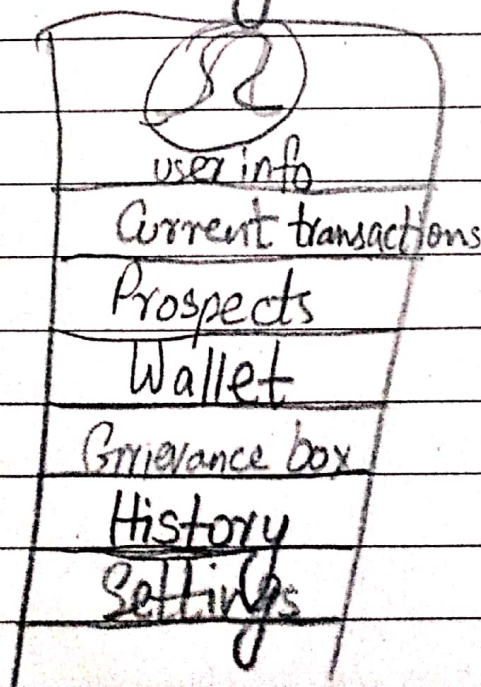 user info
Current transactions
Prospects
Wallet
Grievance box
History
Settings